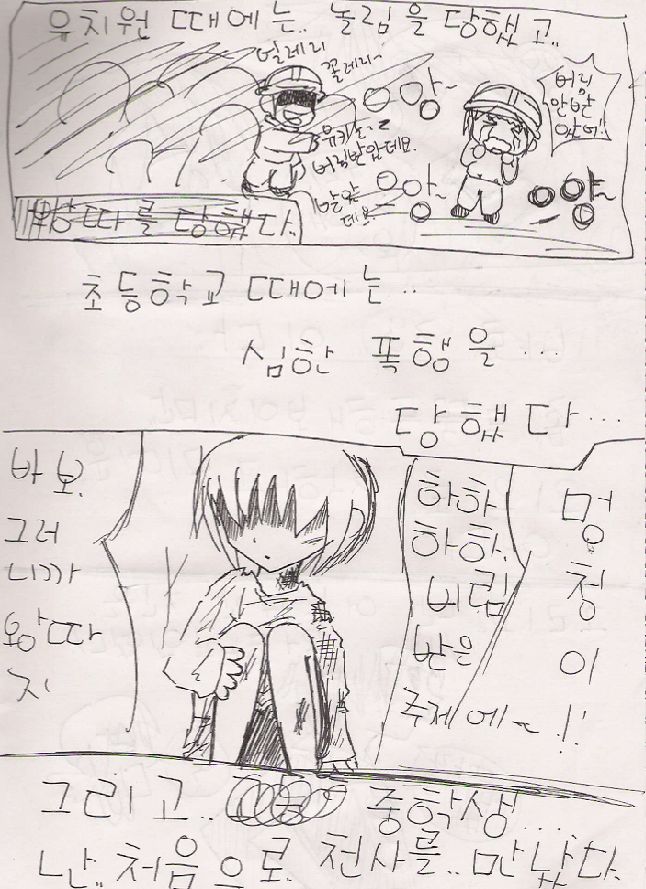 유치원 때에는.. 놀림을 당했고..
얼레리
꼴레리~
버림받았데요.
으앙~
으앙~
으앙~
버림
안받
았어!
왕따를 당했다.
초등학교 때에는..
심한 폭행을...
당했다...
바보.
그러
니까
왕따
지
하하
하하.
버림
받은
주제에~
멍
청
이
!!
그리고.. 중학생....
난.. 처음으로 천사를.. 만났다.